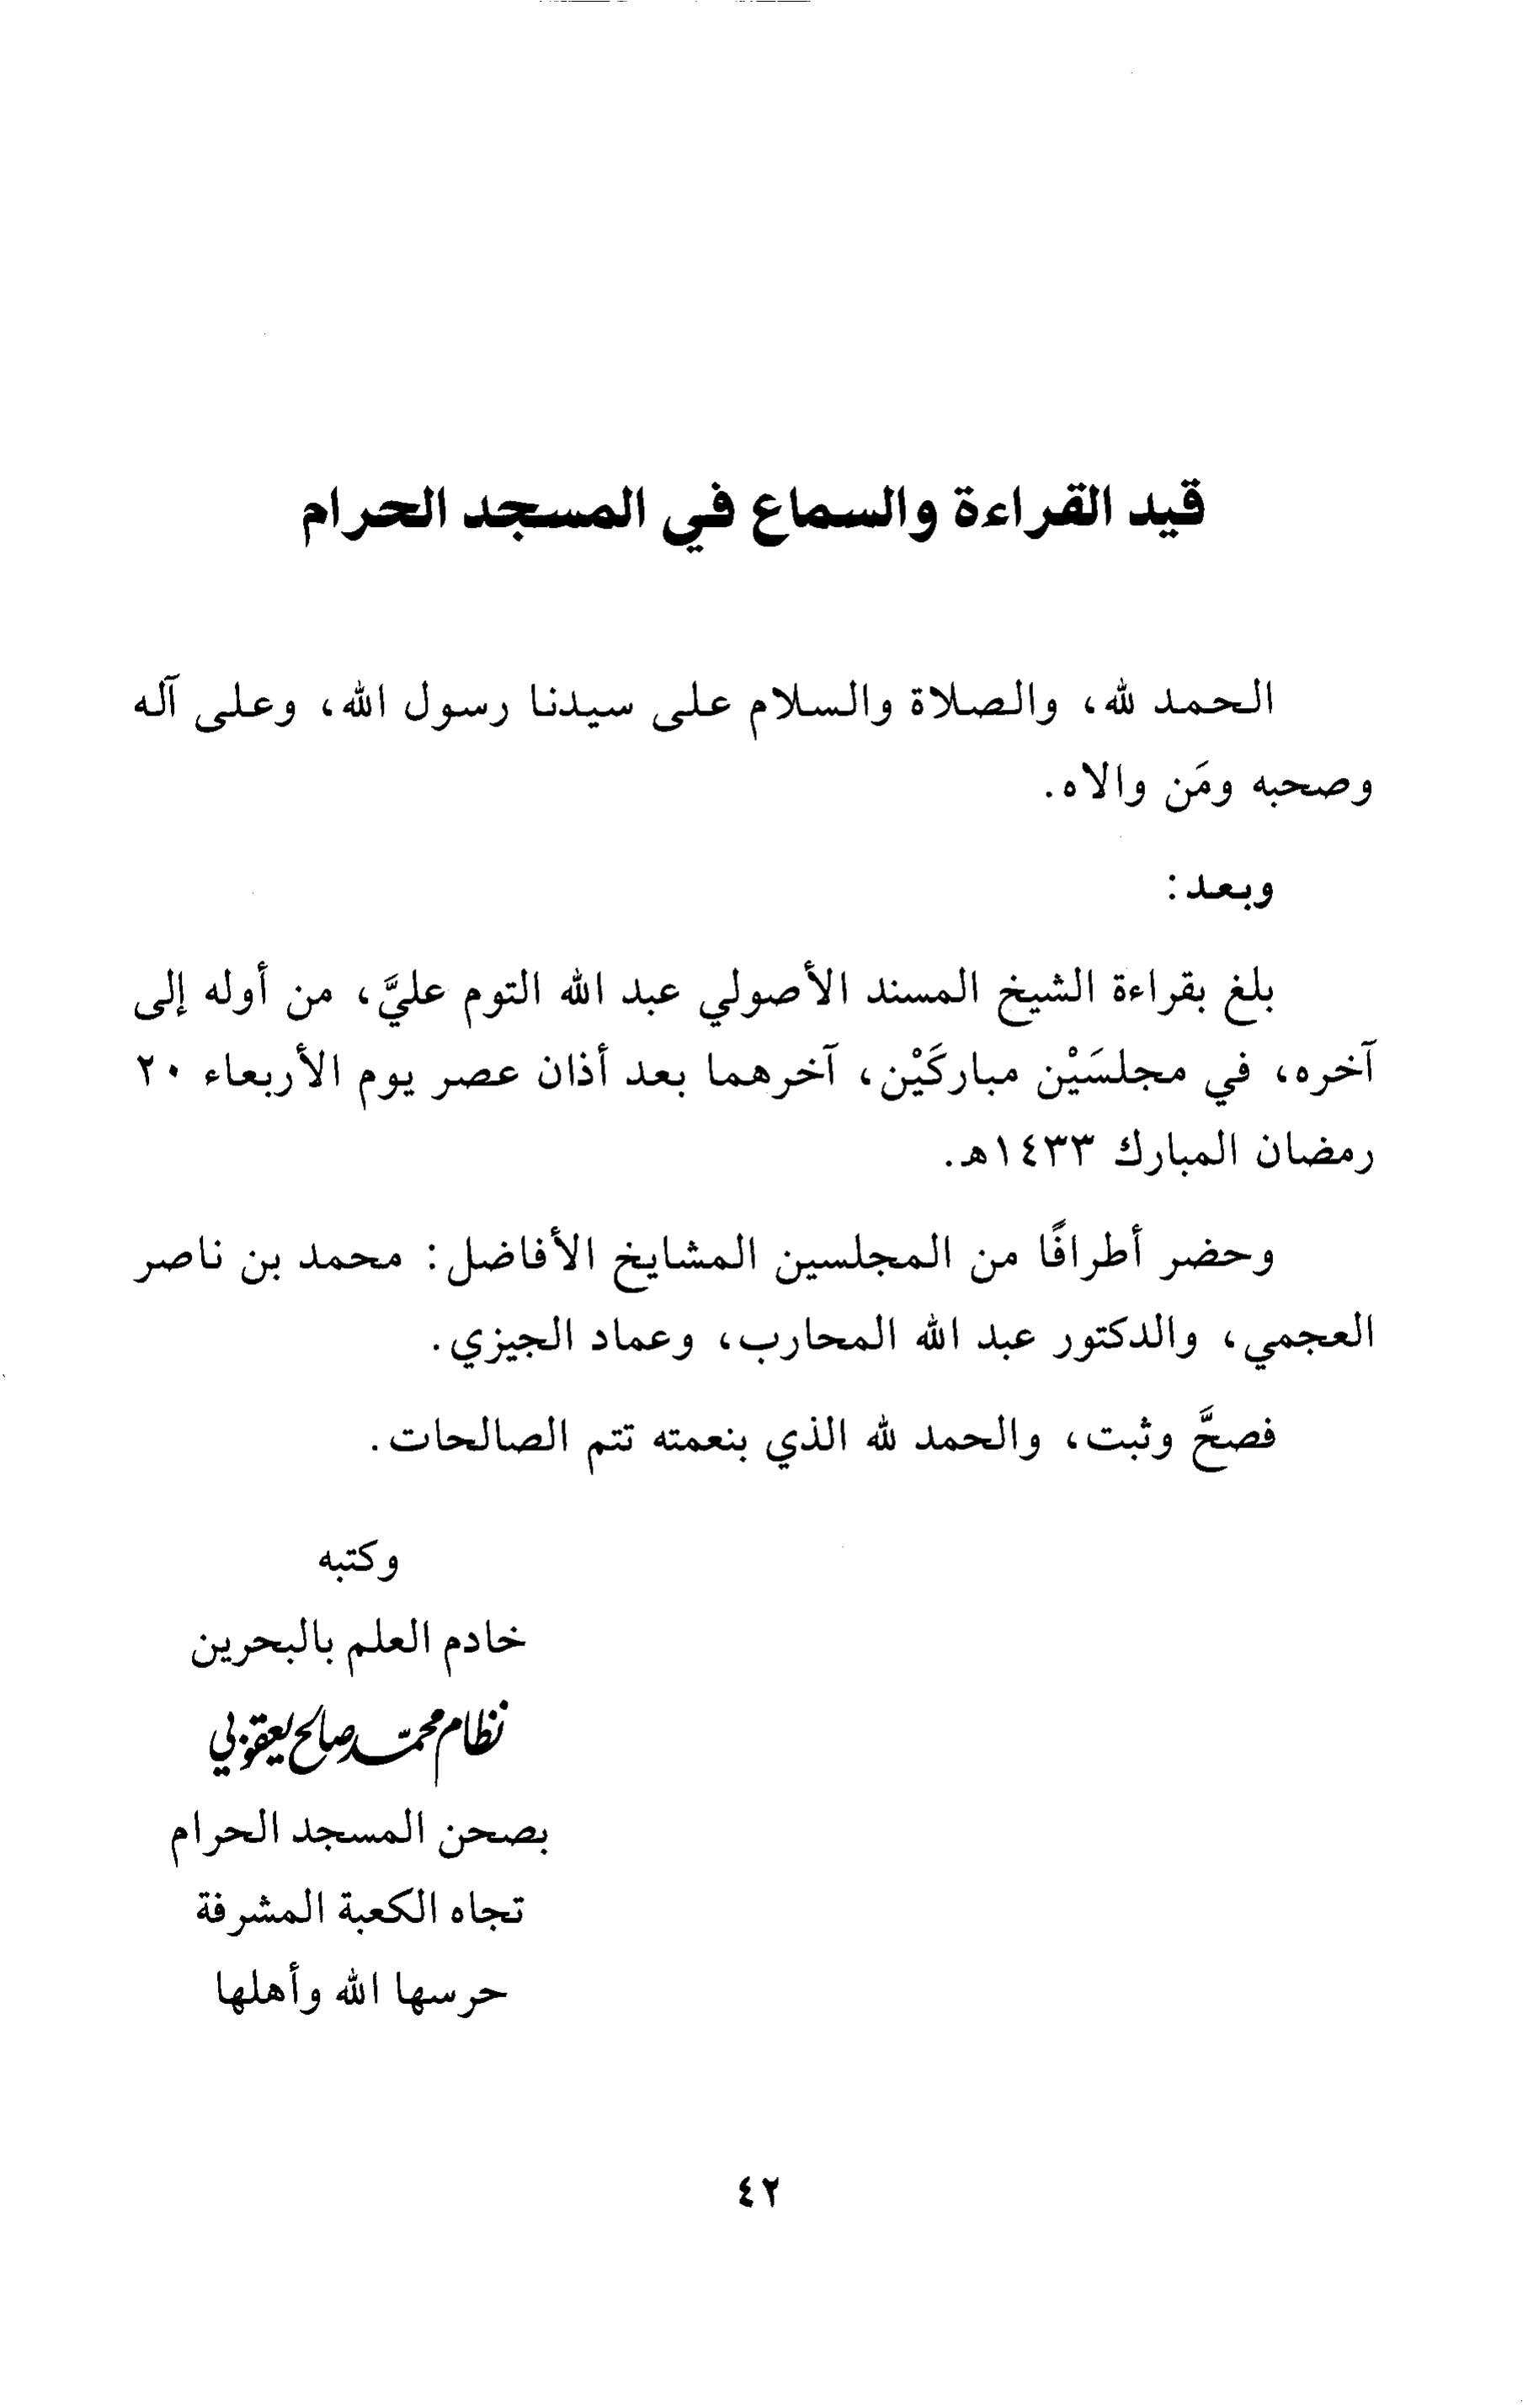 قيد القراءة والسماع في المسجد الحرام
الحمد لله، والصلاة والسلام على سيدنا رسول الله، وعلى آله
وصحبه ومَن والاه.
وبعد:
بلغ بقراءة الشيخ المسند الأصولي عبد الله التوم عليَّ، من أوله إلى
آخره، في مجلسَيْن مباركَيْن، آخرهما بعد أذان عصر يوم الأربعاء ٢٠
رمضان المبارك ١٤٣٣هـ.
وحضر أطرافًا من المجلسين المشايخ الأفاضل: محمد بن ناصر
العجمي، والدكتور عبد الله المحارب، وعماد الجيزي.
فصحَّ وثبت، والحمد لله الذي بنعمته تتم الصالحات.
وكتبه
خادم العلم بالبحرين
نظام محمّد صالح يعقوبي
بصحن المسجد الحرام
تجاه الكعبة المشرفة
حرسها الله وأهلها
٤٢